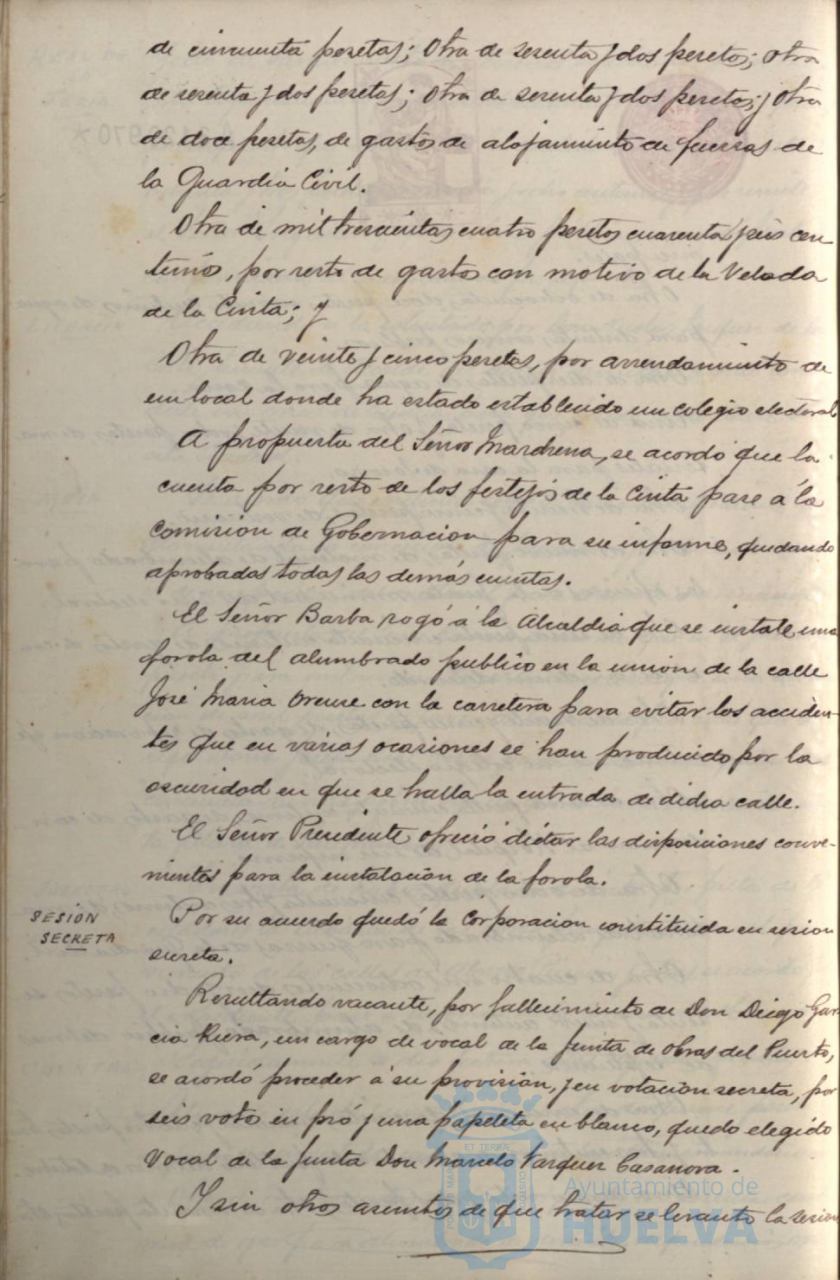 de cincuenta pesetas; Otra de sesenta y dos pesetas; otra
de sesenta y dos pesetas; Otra de sesenta y dos pesetas; y Otra
de doce pesetas, de gastos de alojamiento de fuerzas de
la Guardia Civil.
Otra de mil trescientas cuatro pesetas cuarenta y seis cen
timos, por resto de gastos con motivo de la Velada
de la Cinta; y
Otra de veinte y cinco pesetas, por arrendamiento de
un local donde ha estado establecido un colegio electoral
A propuesta del Señor Marchena, se acordó que la
cuenta por resto de los festejos de la Cinta pase á la
Comision de Gobernacion para su informe, quedando
aprobadas todas las demás cuentas.
El Señor Barba rogó á la Alcaldia que se instale una
farola del alumbrado publico en la unión de la calle
José Maria Orense con la carretera para evitar los acciden-
tes que en varias ocasiones se han producido por la
oscuridad en que se halla la entrada de dicha calle.
El Señor Presidente ofreció dictar las disposiciones conve-
nientes para la instalación de la farola.
SESION
SECRETA
Por su acuerdo quedó la Corporacion constituida en sesion
secreta.
Resultando vacante, por fallecimiento de Don Diego Gar
cia Riera, un cargo de vocal de la Junta de Obras del Puerto,
se acordó proceder á su provisión, y en votacion secreta, por
seis votos en pró y una papeleta en blanco, quedo elegido
Vocal de la Junta Don Marcelo Vazquez Casanova.
Y sin otros asuntos de que tratar se levanto la sesion
Ayuntamiento de
HUELVA